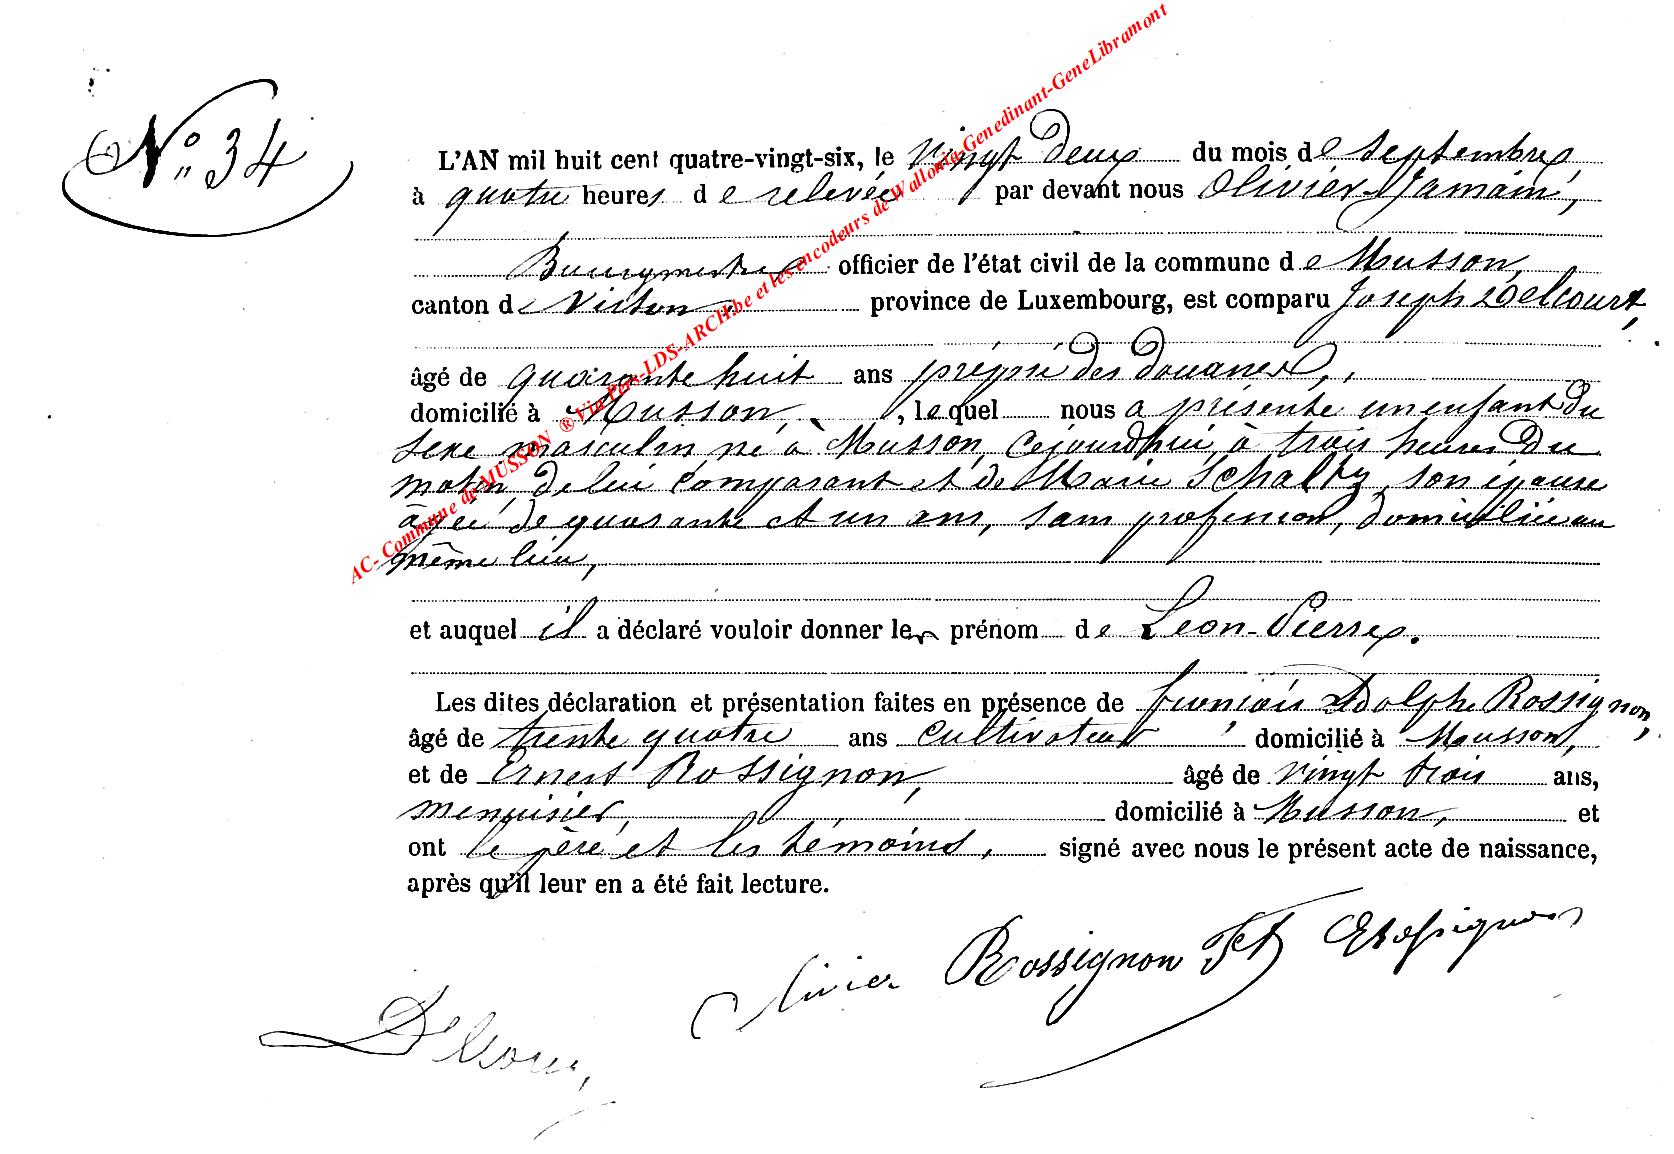 N° 34
L'AN mil huit cent quatre-vingt-six, le vingt deux du mois de septembre,
à quatre heures de relevée par devant nous Olivier Jamain,
Bourgmestre officier de l'état civil de la commune de Musson,
canton de Virton, province de Luxembourg, est comparu Joseph Delcourt,
âgé de quarante huit ans préposé des douanes,
domicilié à Musson, , lequel nous a présenté un enfant du
sexe masculin, né à Musson, cejourd'hui, à trois heures du
matin, de lui comparant et de Marie Schaltz, son épouse
âgée de quarante et un ans, sans profession, domiciliée au
même lieu,
et auquel il a déclaré vouloir donner les prénom de Léon-Pierre.
Les dites déclaration et présentation faites en présence de François Adolphe Rossignon,
âgé de trente quatre ans cultivateur, domicilié à Musson,
et de Ernest Rossignon, âgé de vingt trois ans,
menuisier, domicilié à Musson, et
ont le père et les témoins, signé avec nous le présent acte de naissance,
après qu'il leur en a été fait lecture.
Olivier Rossignon ERossignon
Delcour,
AC- Commune de MUSSON ® Via Pers-LDS-ARCH.be et les encodeurs de Wallonia-Genedinant-GeneLibramont